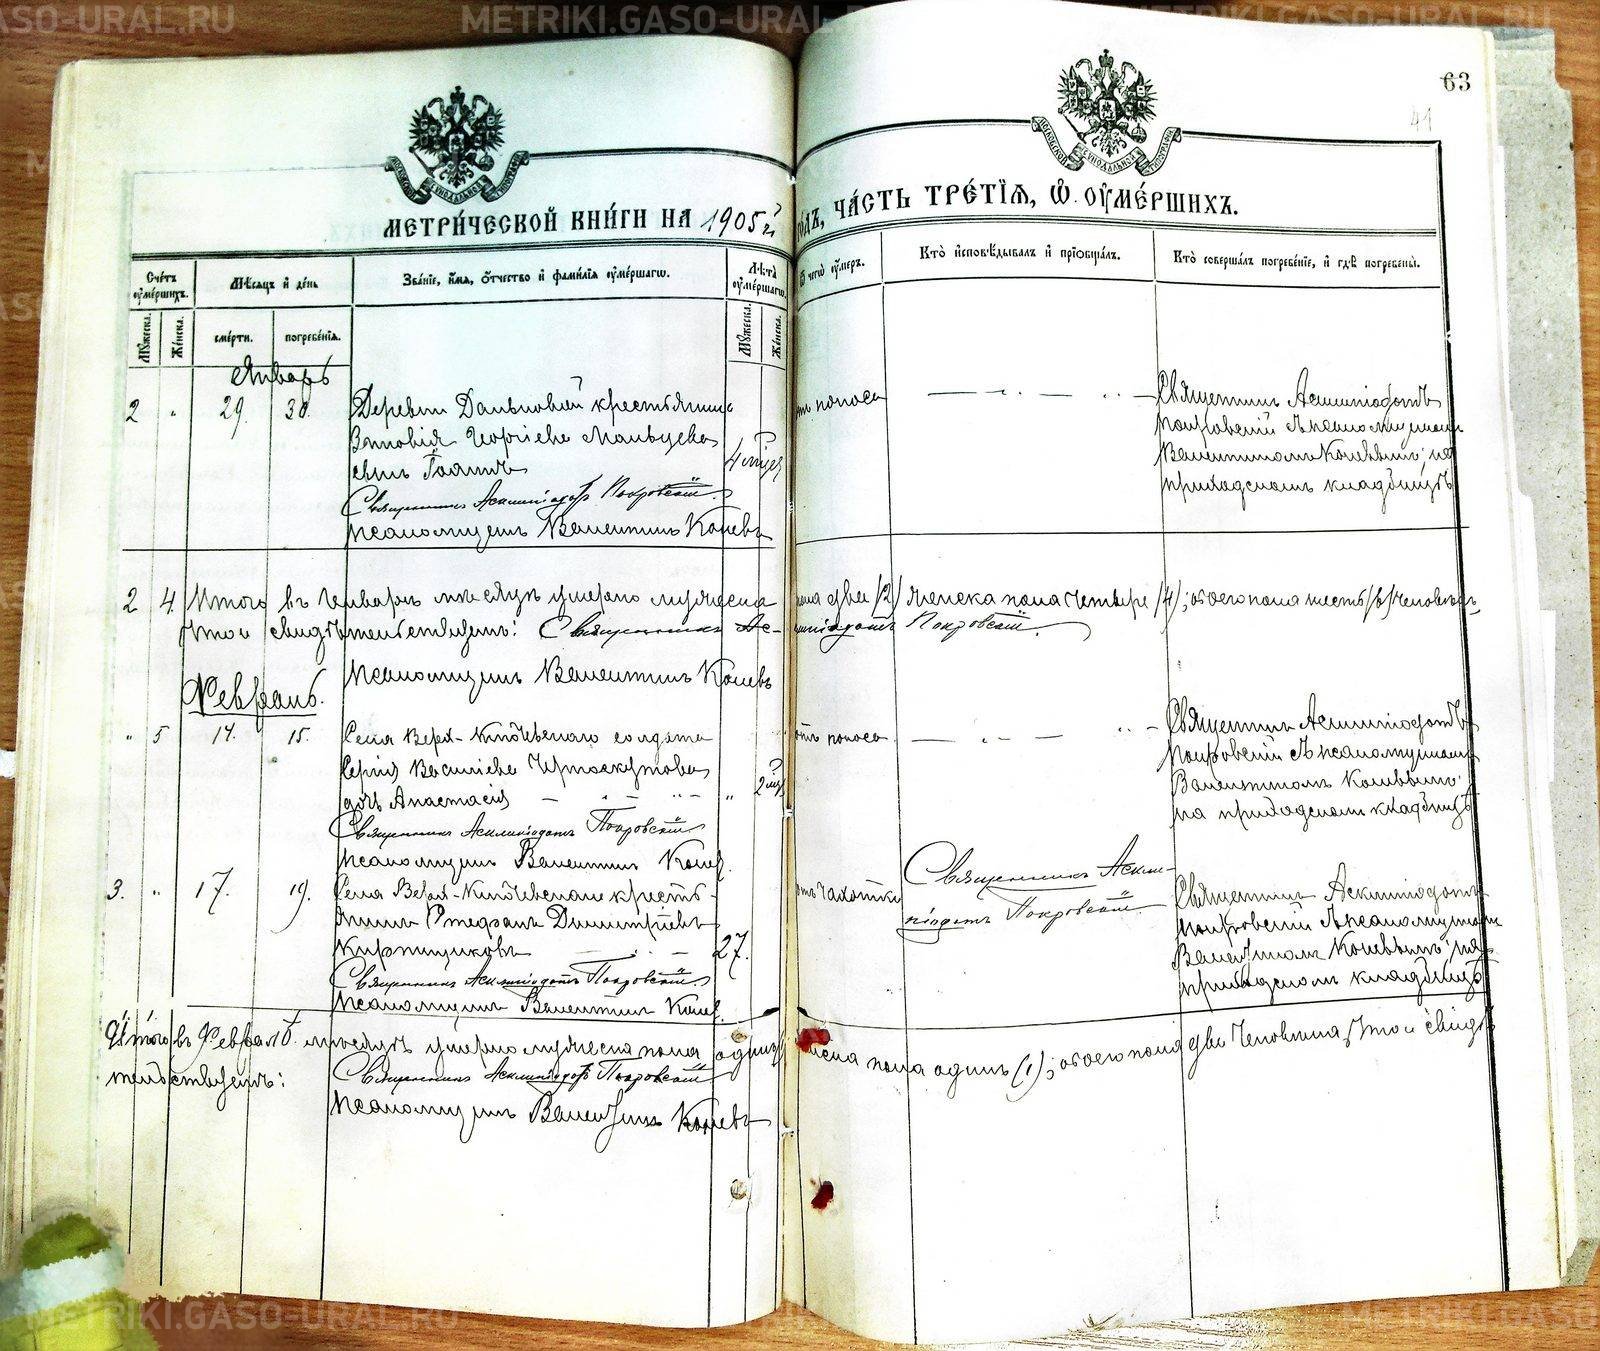 METRIKI.GASO-URAL.RU
63
41
МЕТРИ́ЧЕСКОЙ КНИ́ГИ НА 1905й
ГО́ДЪ, ЧА́СТЬ ТРЕ́ТІѦ, Ѽ ОУМЕ́РШИХЪ.
Сче́тъ оуме́ршихъ.
Мѣ́сѧцъ и де́нь
Зва́нїе, и́мѧ, ѻ́тчество и фами́лїѧ оуме́ршагѡ.
Лѣ́та оуме́ршагѡ.
Ѿ чегѡ̀ оу́меръ.
Кто̀ и҆сповѣ́дывалъ и прїобща́лъ.
Кто̀ соверша́лъ погребе́нїе, и гдѣ̀ погребены̀.
Му́жеска.
Же́нска.
сме́рти.
погребе́нїѧ.
Му́жеска.
Же́нска.
Январь
2 " 29. 30. Деревни крестьянина
Зиновія Георгіева
сынъ Іоаннъ 4 мѣсяц
Священникъ Асклипіодотъ Покровскій
Псаломщикъ Валентинъ Коневъ
отъ поноса
Священникъ Асклипіодотъ
Покровскій съ псаломщикомъ
Валентиномъ Коневымъ; на
приходскомъ кладбищѣ
2 4 Итого въ Январѣ мѣсяцѣ умерло мужеска пола два /2/ женска пола четыре /4/; обоего пола шесть /6/ человѣкъ,
что и свидѣтельствуемъ: Священникъ Асклипіодотъ Покровскій
Псаломщикъ Валентинъ Коневъ
Февраль.
" 5 14. 15. Села Верх- солдата
Сергія Василіева Черноскутова
дочь Анастасія " 2 мѣс
Священникъ Асклипіодотъ Покровскій
Псаломщикъ Валентинъ Конев
отъ поноса
Священникъ Асклипіодотъ
Покровскій съ псаломщикомъ
Валентиномъ Коневымъ
на приходскомъ кладбищѣ
3. " 17. 19. Села Верх- кресть-
янинъ Стефанъ Димитріевъ
Кирпищиковъ 27.
Священникъ Асклипіодотъ Покровскій
Псаломщикъ Валентинъ Конев.
отъ чахотки
Священникъ Аскли-
піодотъ Покровскій
Священникъ Асклипіодотъ
Покровскій съ псаломщикомъ
Валентиномъ Коневымъ; на
приходскомъ кладбищѣ
Итого въ Февралѣ мѣсяцѣ умерло мужеска пола одинъ женска пола одинъ (1); обоего пола два человѣка, что и свидѣ
тельствуемъ: Священникъ Асклипіодотъ Покровскій
Псаломщикъ Валентинъ Коневъ